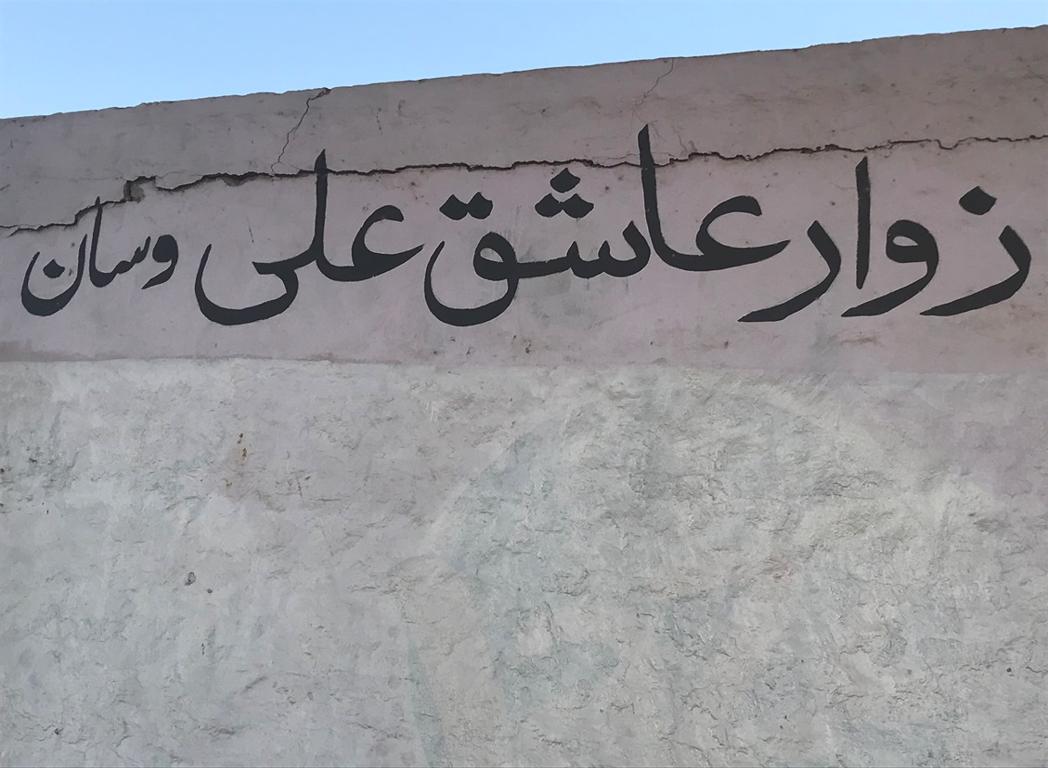 زوار عاشق علی وسان